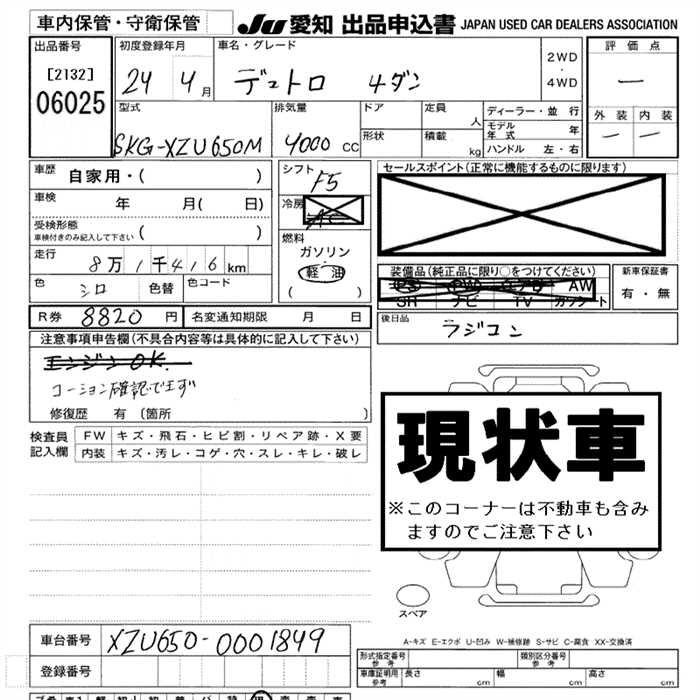 車内保管・守衛保管
JU 愛知 出品申込書 JAPAN USED CAR DEALERS ASSOCIATION
出品番号
[2132]
06025
初度登録年月
24 4月
車名・グレード
デュトロ 4ダン
2WD
・
4WD
評価点
ー
外装 内装
ー ー
型式
SKG-XZU650M
排気量
4000cc
ドア
定員
人
形状
積載
kg
ディーラー・並行
モデル年式 年
ハンドル 左・右
車歴 自家用・( )
車検 年 月( 日)
受検形態
車検付きのみ記入して下さい ( )
走行 8万1千416km
色 シロ 色替 色コード
シフト F5
冷房 AC
燃料
ガソリン
・
軽油
( )
セールスポイント(正常に機能するものに限ります)
装備品(純正品に限り○をつけてください)
PS PW エアB AW
SR ナビ TV カセット
新車保証書
有・無
R券 8820円 名変通知期限 月 日
後日品
ラジコン
注意事項申告欄(不具合内容等は具体的に記入して下さい)
エンジンOK.
コーション確認できず
修復歴 有 〔箇所 〕
検査員
記入欄
FW キズ・飛石・ヒビ割・リペア跡・X要
内装 キズ・汚レ・コゲ・穴・スレ・キレ・破レ
現状車
※このコーナーは不動車も含み
ますのでご注意下さい
スペア
A-キズ E-エクボ U-凹み W-補修跡 S-サビ C-腐食 XX-交換済
車台番号 XZU650-0001849
登録番号
形式指定番号
参考
類別区分番号
参考
車庫証明用
参考
長さ cm 幅 cm 高さ cm